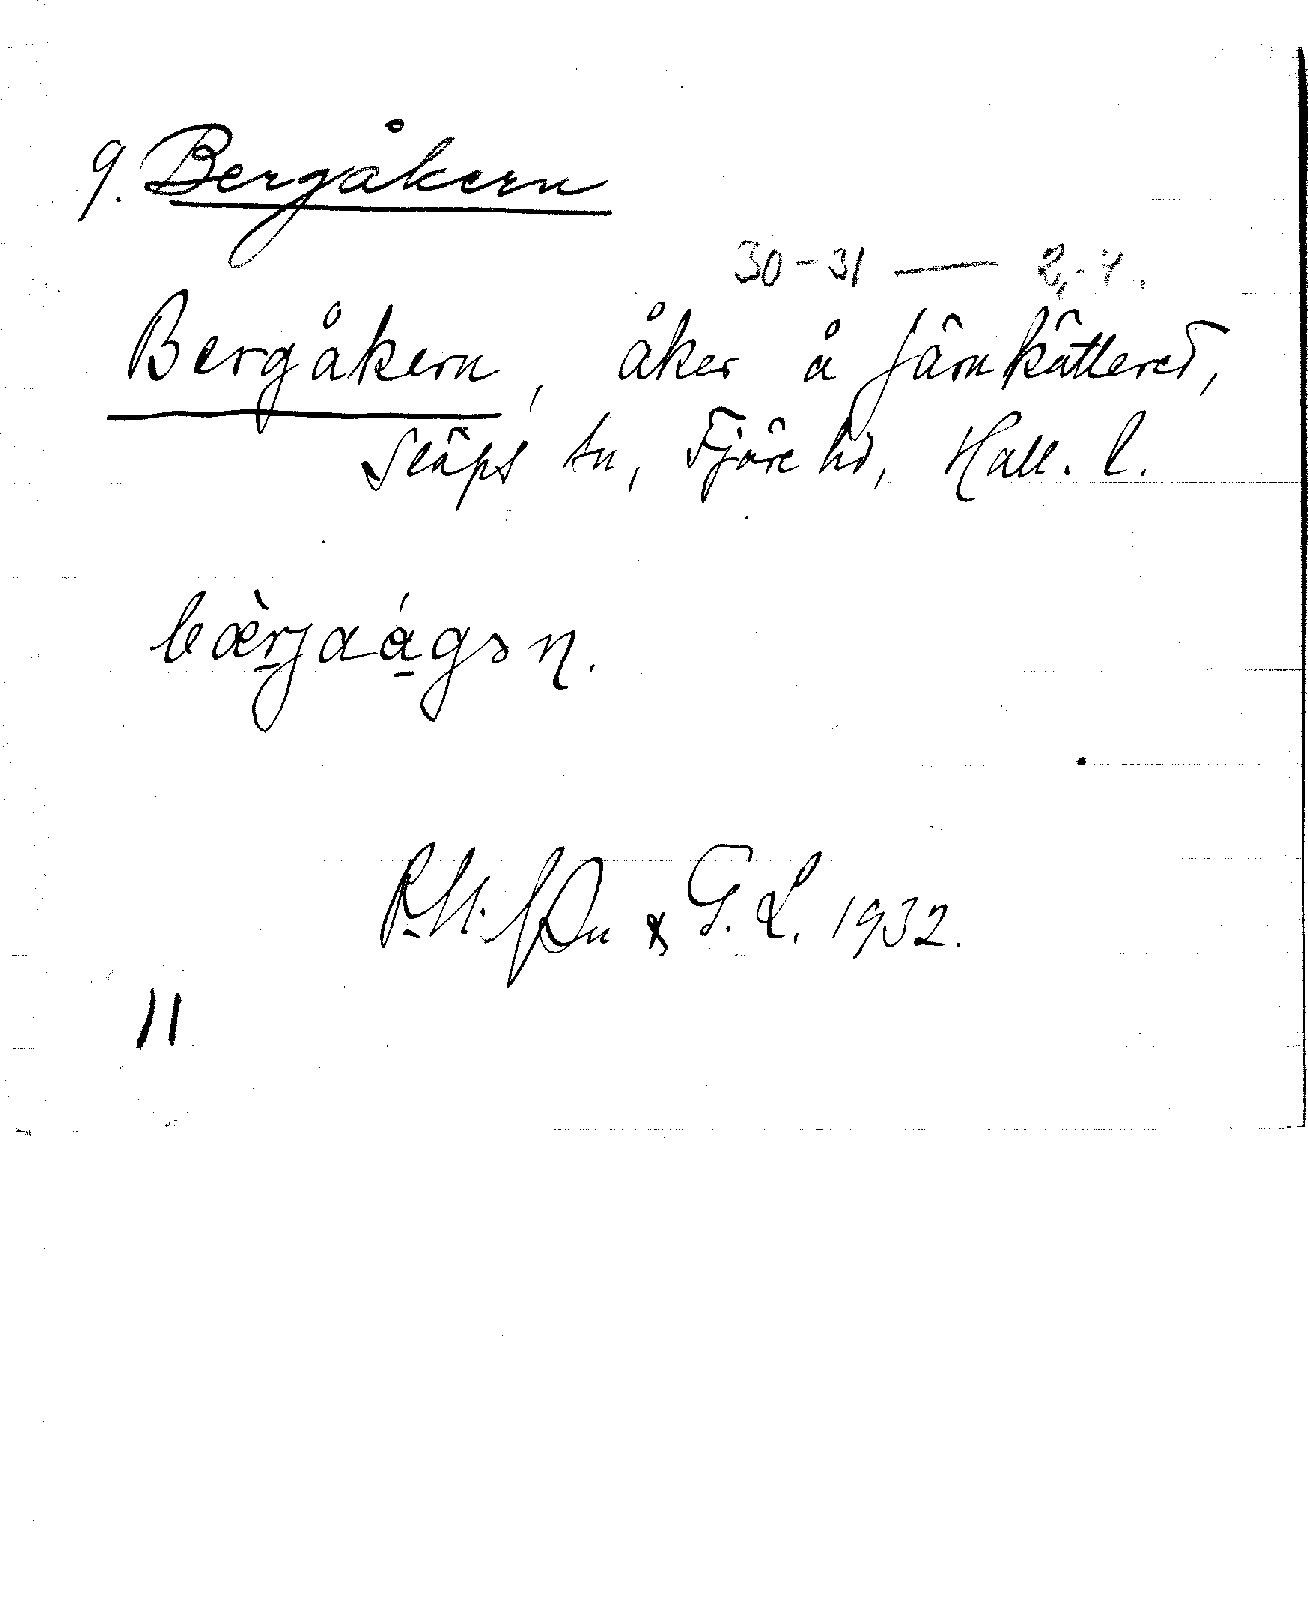 9. Bergåkern
30-31 — 2,-4.
Bergåkern, åker å Järnkätlered,
Släps sn, Fjäre hd, Hall. l.
bæ̀rjaágən.
G. L. 1932.
11